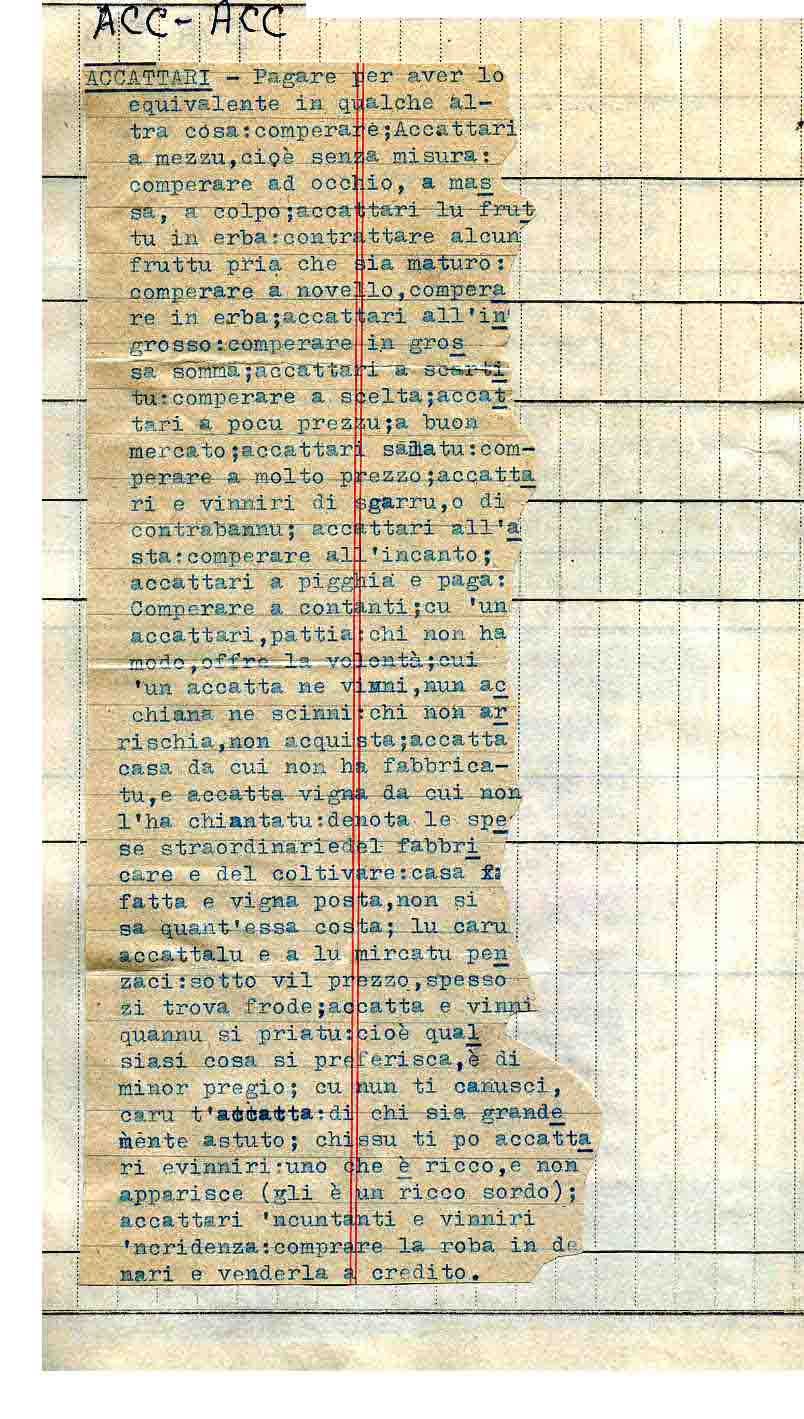 ACC- ACC
ACCATTARI - Pagare per aver lo
equivalente in qualche al-
tra cosa:comperare;Accattari
a mezzu,cioè senza misura:
comperare ad occhio, a mas
sa, a colpo;accattari lu frut
tu in erba:contrattare alcun
fruttu pria che sia maturo:
comperare a novello,compera
re in erba;accattari all'in
grosso:comperare in gros
sa somma;accattari a scarti
tu:comperare a scelta;accat
tari a pocu prezzu;a buon
mercato;accattari salatu:com-
perare a molto prezzo;accatta
ri e vinniri di sgarru,o di
contrabannu; accattari all'a
sta:comperare all'incanto;
accattari a pigghia e paga:
Comperare a contanti;cu 'un
accattari,pattia:chi non ha
modo,offre la volontà;cui
'un accatta ne vinni,nun ac
chiana ne scinni:chi non ar
rischia,non acquista;accatta
casa da cui non ha fabbrica-
tu,e accatta vigna da cui non
l'ha chiantatu:denota le spe
se straordinariedel fabbri
care e del coltivare:casa
fatta e vigna posta,non si
sa quant'essa costa; lu caru
accattalu e a lu mircatu pen
zaci:sotto vil prezzo,spesso
zi trova frode;accatta e vinni
quannu si priatu:cioè qual
siasi cosa si preferisca,è di
minor pregio; cu nun ti canusci,
caru t'accatta:di chi sia grande
mente astuto; chissu ti po accatta
ri evinniri:uno che è ricco,e non
apparisce (gli è un ricco sordo);
accattari 'ncuntanti e vinniri
'ncridenza:comprare la roba in de
nari e venderla a credito.